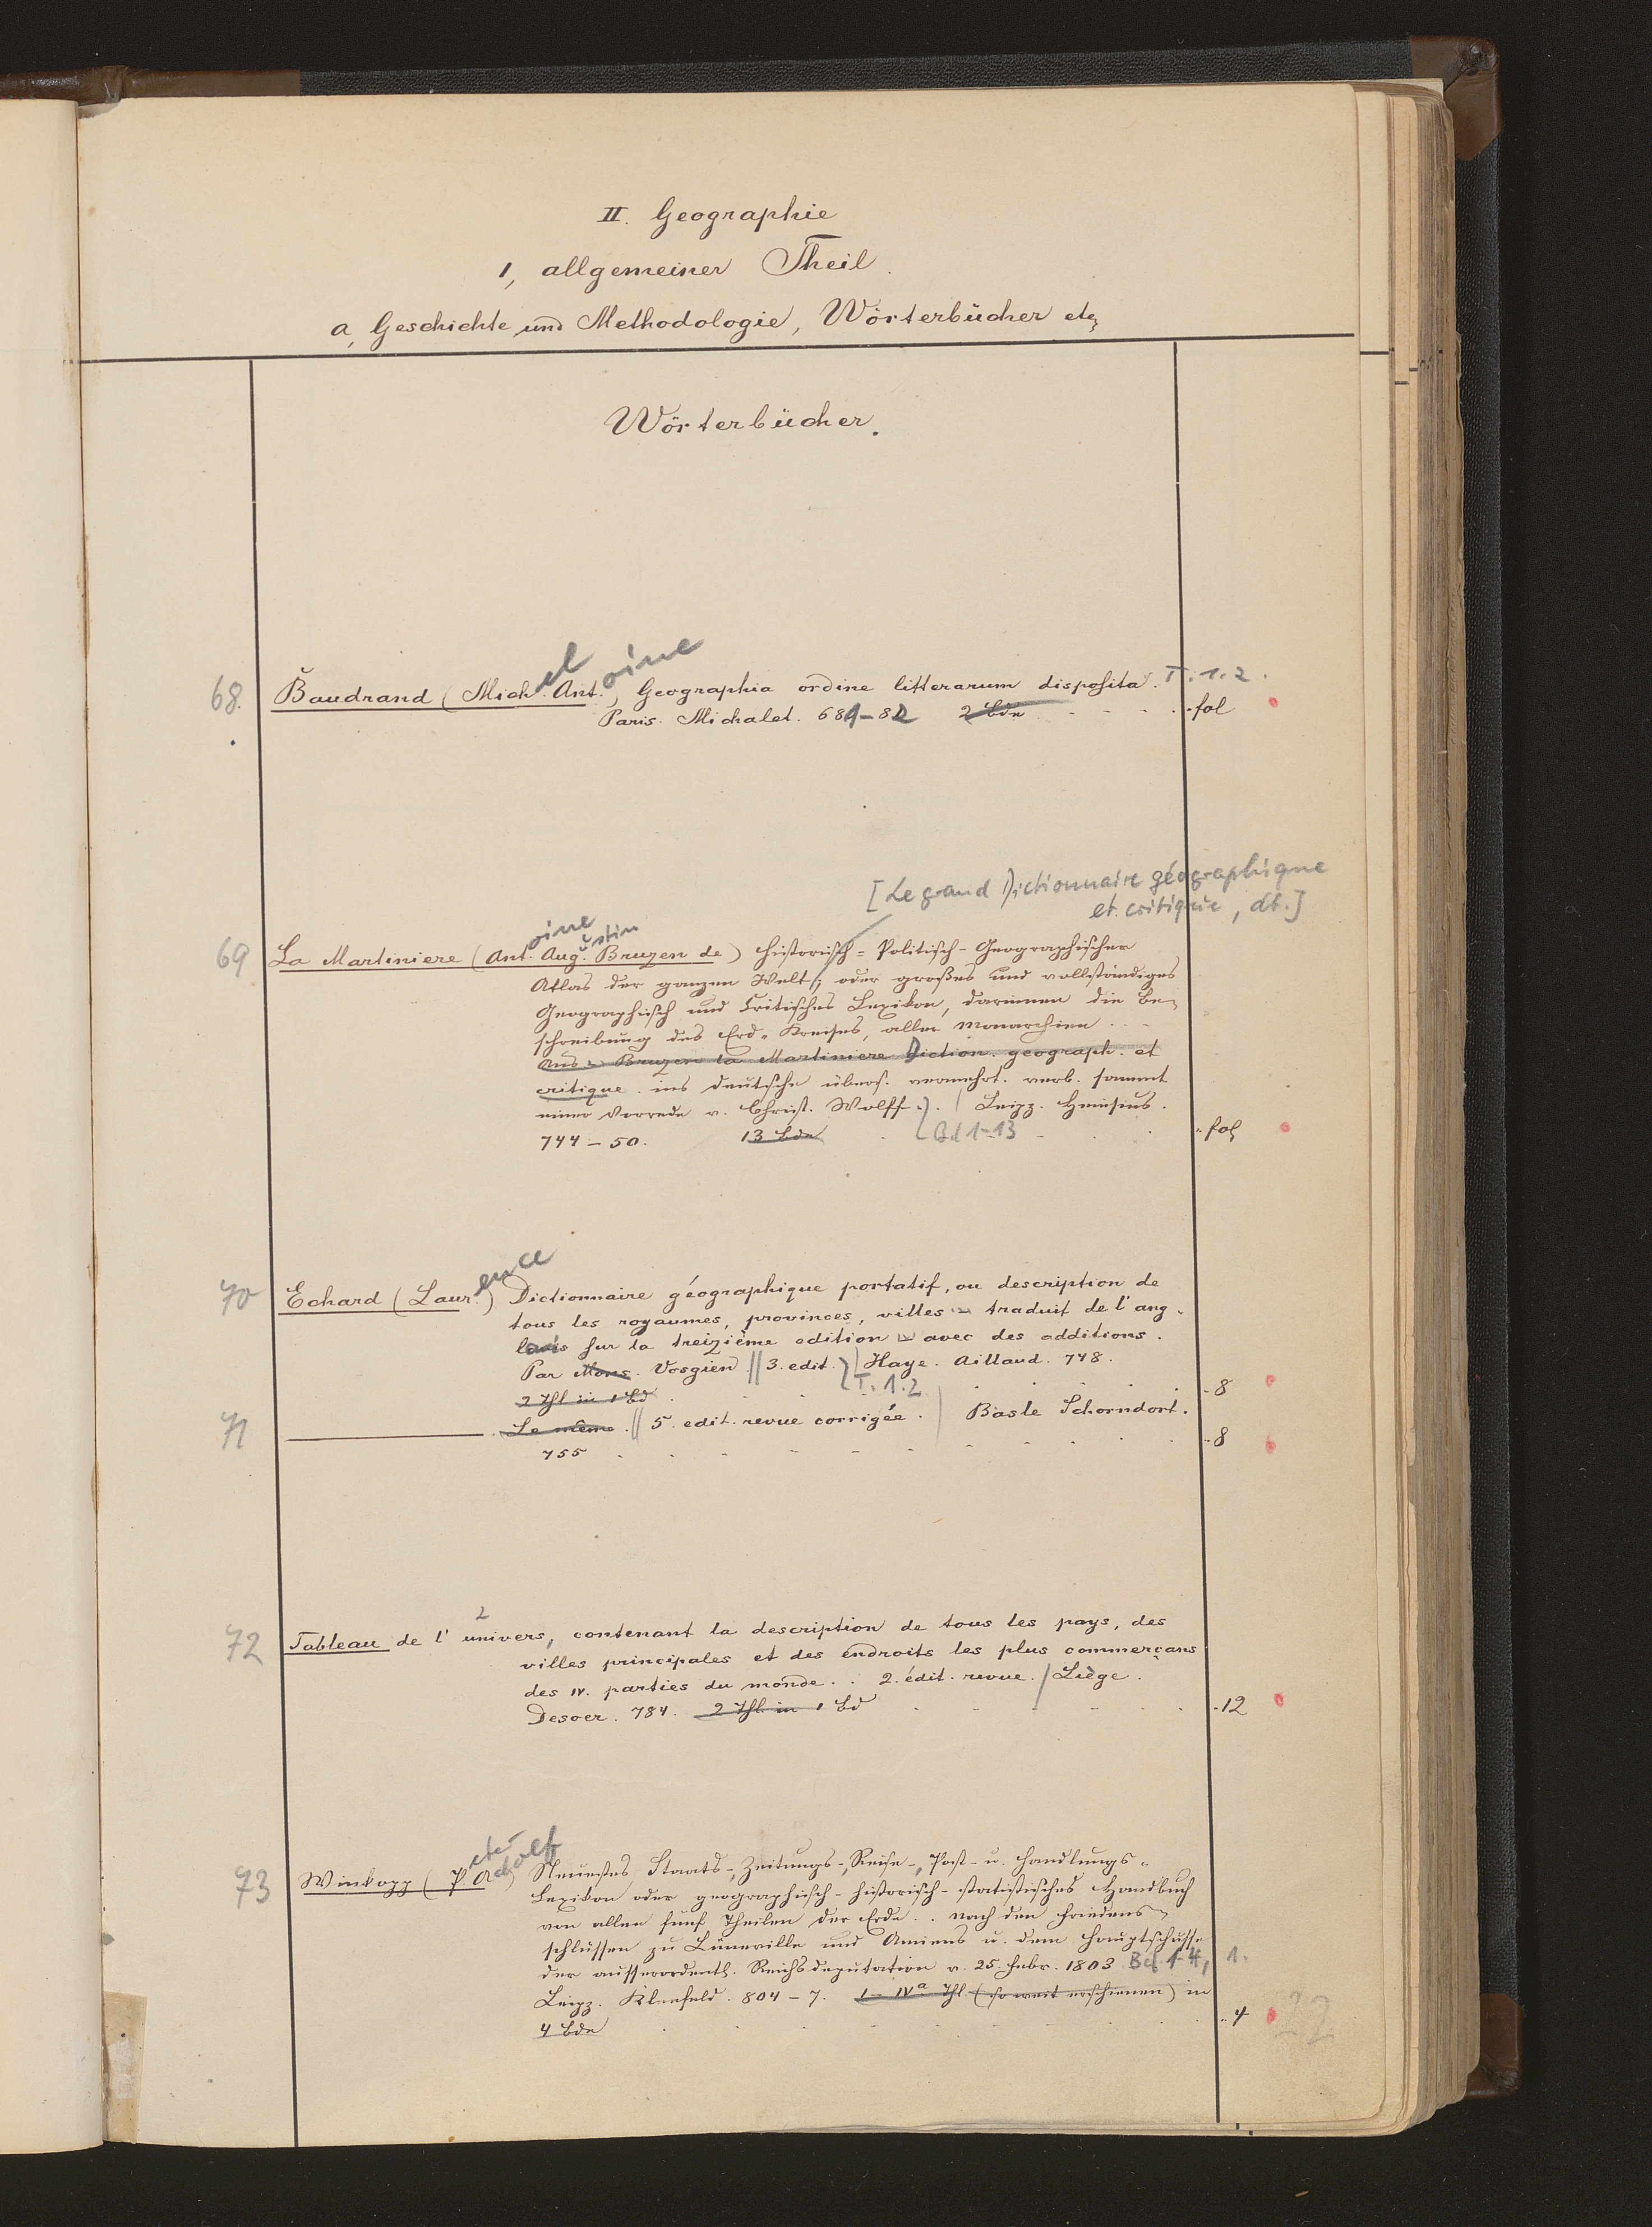 II. Geographie
1, allgemeiner Theil.
a, Geschichte und Methodologie, Wörterbücher etc
Wörterbücher.
el oine
68. Baudrand (Mich. Ant.) Geographia ordine litterarum disposita. T. 1.2.
Paris. Michalet. 681-82 2 Bde fol
[Le grand Dictionnaire géographique
et critique, dt.]
oine ustin
69 La Martiniere (Ant. Aug. Bruzen de) Historisch=Politisch-Geographischer
Atlas der ganzen Welt, oder großes und vollständiges
Geographisch und Critisches Lexikon, darinnen die Be-
schreibung des Erd-Kreises, aller Monarchien ..
Aus Bruzen la Martiniere Diction. geograph. et
critique. ins deutsche übers. vermehrt. verb. sammt
einer Vorrede v. Christ. Wolff. Leipz. Heinsius.
744-50. 13 Bde Bd 1-13 fol
ence
70 Echard (Laur.) Dictionnaire géographique portatif, ou description de
tous les royaumes, provinces, villes traduit de l'ang-
lais sur la treizième edition avec des additions.
Par Mons. Vosgien. 3. edit. Haye. Aillaud. 748.
2 Thl in 1 Bd T. 1.2 8
71 Le même. 5. edit. revue corrigée. Basle Schorndorf.
755 8
2
72 Tableau de l' univers, contenant la description de tous les pays, des
villes principales et des endroits les plus commerçans
des IV. parties du monde. . 2. édit. revue. Liège.
Desoer. 784. 2 Thl. in 1 Bd 12
eter olf
73 Winkopp (P. Ad.) Neuestes Staats-, Zeitungs-, Reise-, Post- u. Handlungs-
Lexikon oder geographisch-historisch-statistisches Handbuch
von allen fünf Theilen der Erde. . nach den Friedens-
schlüssen zu Lüneville und Amiens u. dem Hauptschlusse
der ausserordentl. Reichsdeputation v. 25. Febr. 1803 Bd 1-4, 1.
Leipz. Kleefeld. 804-7. I-IVa Thl (so weit erschienen) in
4 Bde 4 22